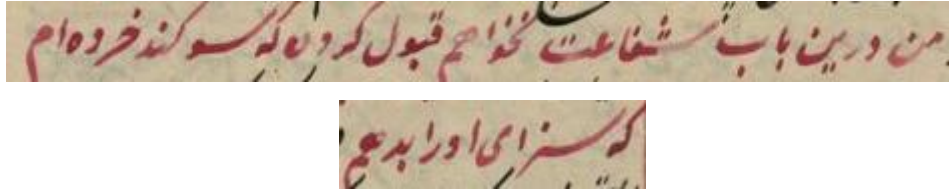 من درین باب شفاعت نخواهم قبول کردن که سوکند خرده‌ام
که سزای او را بدهم